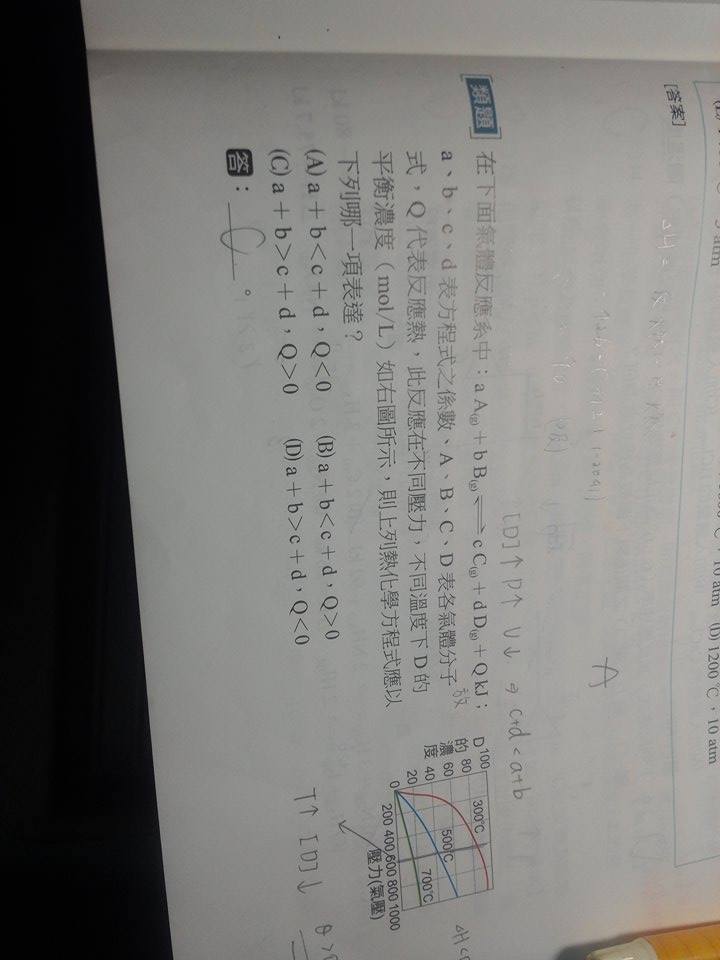 [答案]
3 atm
10 atm (D) 1200℃,10 atm
A
[D]↑ P↑ V↓ ⇒ c+d < a+b
類題 在下面氣體反應系中:a A(g) + b B(g) ⇌ c C(g) + d D(g) + Q kJ;
放
a、b、c、d 表方程式之係數、A、B、C、D 表各氣體分子
式,Q 代表反應熱,此反應在不同壓力,不同溫度下 D 的
平衡濃度(mol/L)如右圖所示,則上列熱化學方程式應以
下列哪一項表達?
(A) a + b < c + d,Q < 0 (B) a + b < c + d,Q > 0
(C) a + b > c + d,Q > 0 (D) a + b > c + d,Q < 0
答:C。
D的濃度
100
80
60
40
20
0
300℃
500℃
700℃
200 400 600 800 1000
壓力(氣壓)
T↑ [D]↓